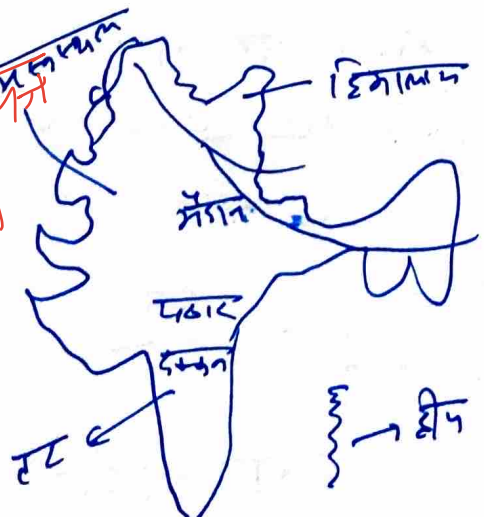 मरुस्थल
हिमालय
मैदान
पठार
दक्कन
तट
द्वीप